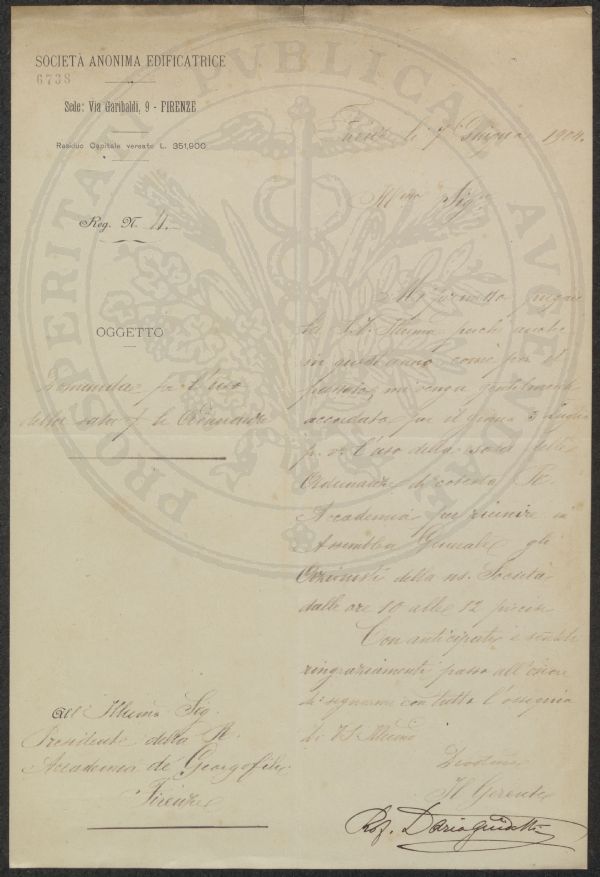 SOCIETÀ ANONIMA EDIFICATRICE
6738
Sede: Via Garibaldi, 9 - FIRENZE
Residuo Capitale versato L. 351,900
Firenze li 7 Giugno 1904.
Reg. N. 4.
Ill.mo Sig.
OGGETTO
Domanda per l'uso
della sala p. le Adunanze
Mi permetto pregare
la S.V. Illma perchè anche
in quest'anno, come per il
passato, mi venga gentilmente
accordato per il giorno 3 Luglio
p. v. l'uso della sala delle
Adunanze di cotesta R.
Accademia per riunire in
Assemblea Generale gli
Azionisti della ns. Società
dalle ore 10 alle 12 precise
Con anticipati e sentiti
ringraziamenti passo all'onore
di segnarmi con tutto l'ossequio
di V.S. Illma
All' Illumo Sig.
Presidente della R.
Accademia de' Georgofili
Firenze
Il Gerente
Prof. Dario
PROSPERITATI PUBLICAE AUGENDAE